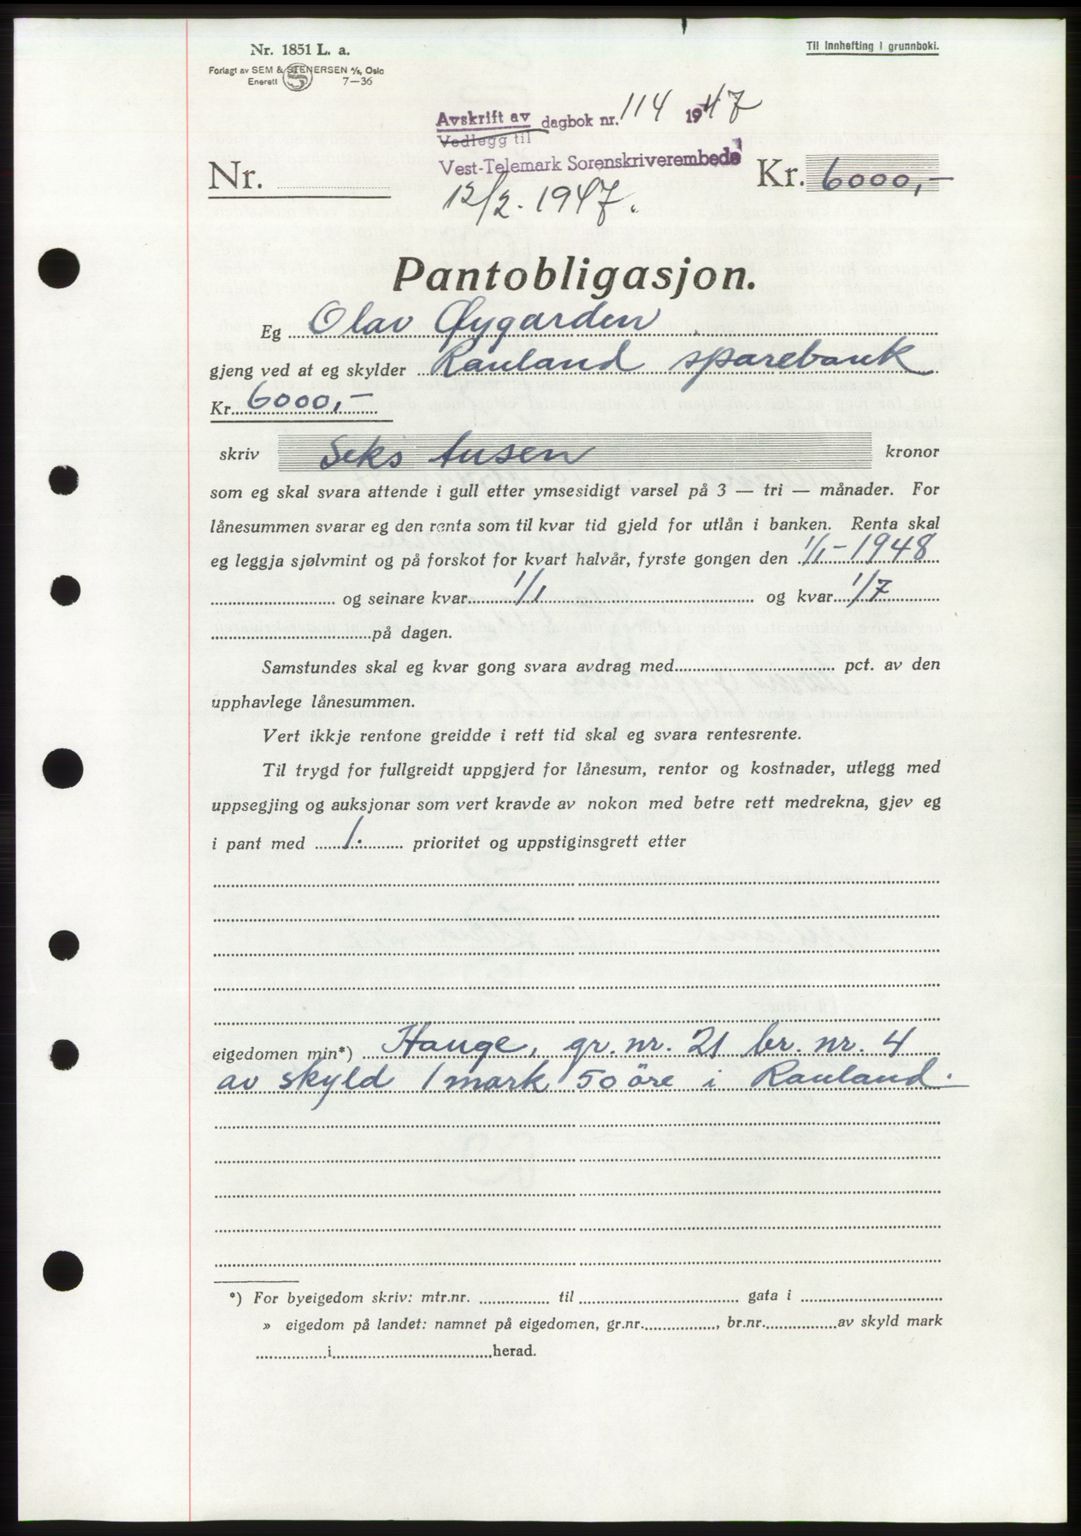 Nr. 1851 L. a.
Til innhefting i grunnboki.
Forlagt av SEM & STENERSEN A/S, Oslo
Enerett S 7—36
Avskrift av dagbok nr. 114 1947
Vedlegg til
Vest-Telemark Sorenskriverembede
Nr. Kr. 6000,-
12/2. 1947.
Pantobligasjon.
Eg Olav Øygarden
gjeng ved at eg skylder Rauland sparebank
Kr. 6000,-
skriv Seks tusen kronor
som eg skal svara attende i gull etter ymsesidigt varsel på 3 — tri — månader. For
lånesummen svarar eg den renta som til kvar tid gjeld for utlån i banken. Renta skal
eg leggja sjølvmint og på forskot for kvart halvår, fyrste gongen den 1/1-1948
og seinare kvar 1/1 og kvar 1/7
på dagen.
Samstundes skal eg kvar gong svara avdrag med pct. av den
upphavlege lånesummen.
Vert ikkje rentone greidde i rett tid skal eg svara rentesrente.
Til trygd for fullgreidt uppgjerd for lånesum, rentor og kostnader, utlegg med
uppsegjing og auksjonar som vert kravde av nokon med betre rett medrekna, gjev eg
i pant med 1. prioritet og uppstiginsgrett etter
eigedomen min*) Hauge, gr. nr. 21 br. nr. 4
av skyld 1 mark 50 öre i Rauland.
*) For byeigedom skriv: mtr.nr. til gata i
» eigedom på landet: namnet på eigedomen, gr.nr. , br.nr. av skyld mark
i herad.